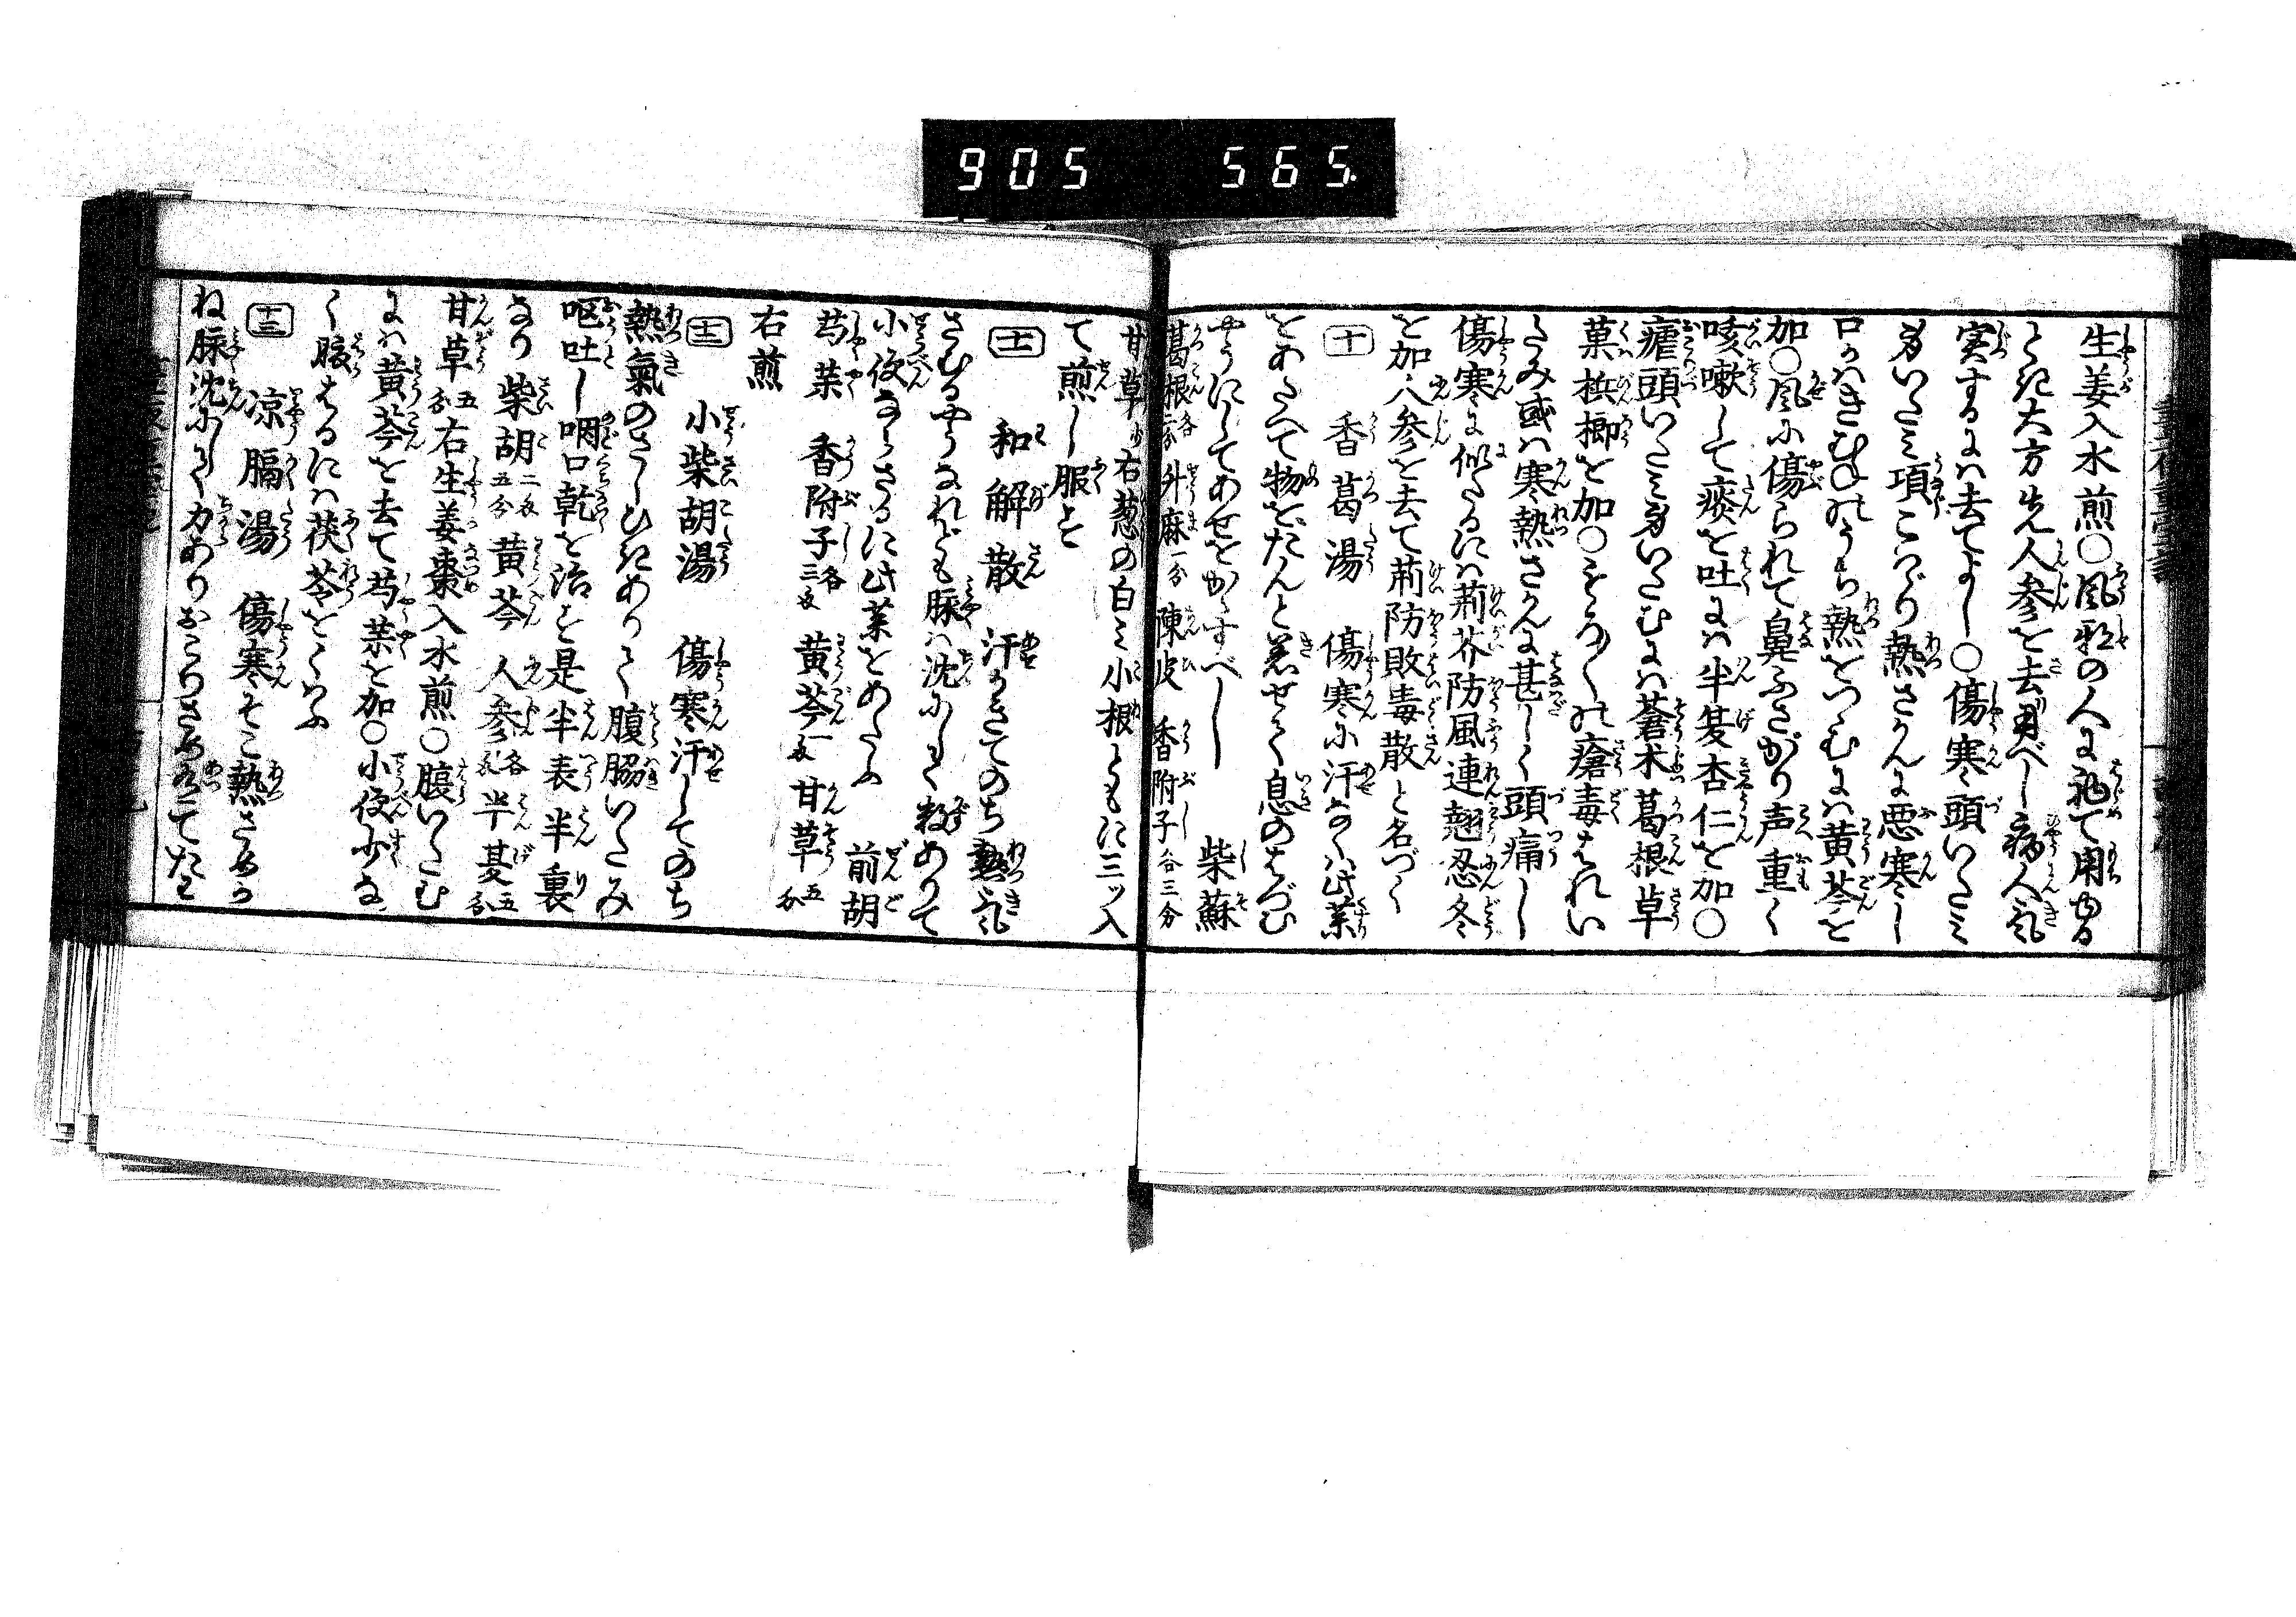 905 565.
生姜入水煎○風邪の人に初て用ゆる
とき大方先人参を去用べし病人気
実するには去てよし○傷寒頭いたミ
身いたミ項こハゞり熱さかんに悪寒し
口かハきむねのうち熱をつゝむには黄芩を
加○風に傷られて鼻ふさがり声重く
咳嗽して痰を吐には半夏杏仁を加○
瘧頭いたミ身いたむには蒼朮葛根草
菓梹榔を加○そろ〳〵の瘡毒はれい
たみ或は寒熱さかんに甚しく頭痛し
傷寒に似たるには荊芥防風連翹忍冬
を加へ人参を去て荊防敗毒散と名づく
十 香葛湯 傷寒に汗なくハ此薬
をあたへて物をだんと着せて息のはづむ
やうにしてあせをかゝすべし 柴蘇
葛根各 升麻一分 陳皮 香附子各三分
甘草少右葱の白ミ小根ともに三ッ入
て煎し服す
十一 和解散 汗かきてのち熱気
さむるやうなれども脉は沈にして数ありて
小便ならざるに此薬をあたふ 前胡
芍薬 香附子各三匁 黄芩一匁 甘草五分
右煎
十二 小柴胡湯 傷寒汗してのち
熱氣のさしひきありて腹脇いたみ
呕吐し咽口乾を治す是半表半裏
なり 柴胡二匁五分 黄芩 人参各 半夏五分
甘草五分右生姜棗入水煎○腹いたむ
には黄芩を去て芍薬を加○小便少な
く腹はるには茯苓をくハふ
十三 凉膈湯 傷寒そこ熱さめか
ね脉沈にして力ありおこりさめありてたヾ